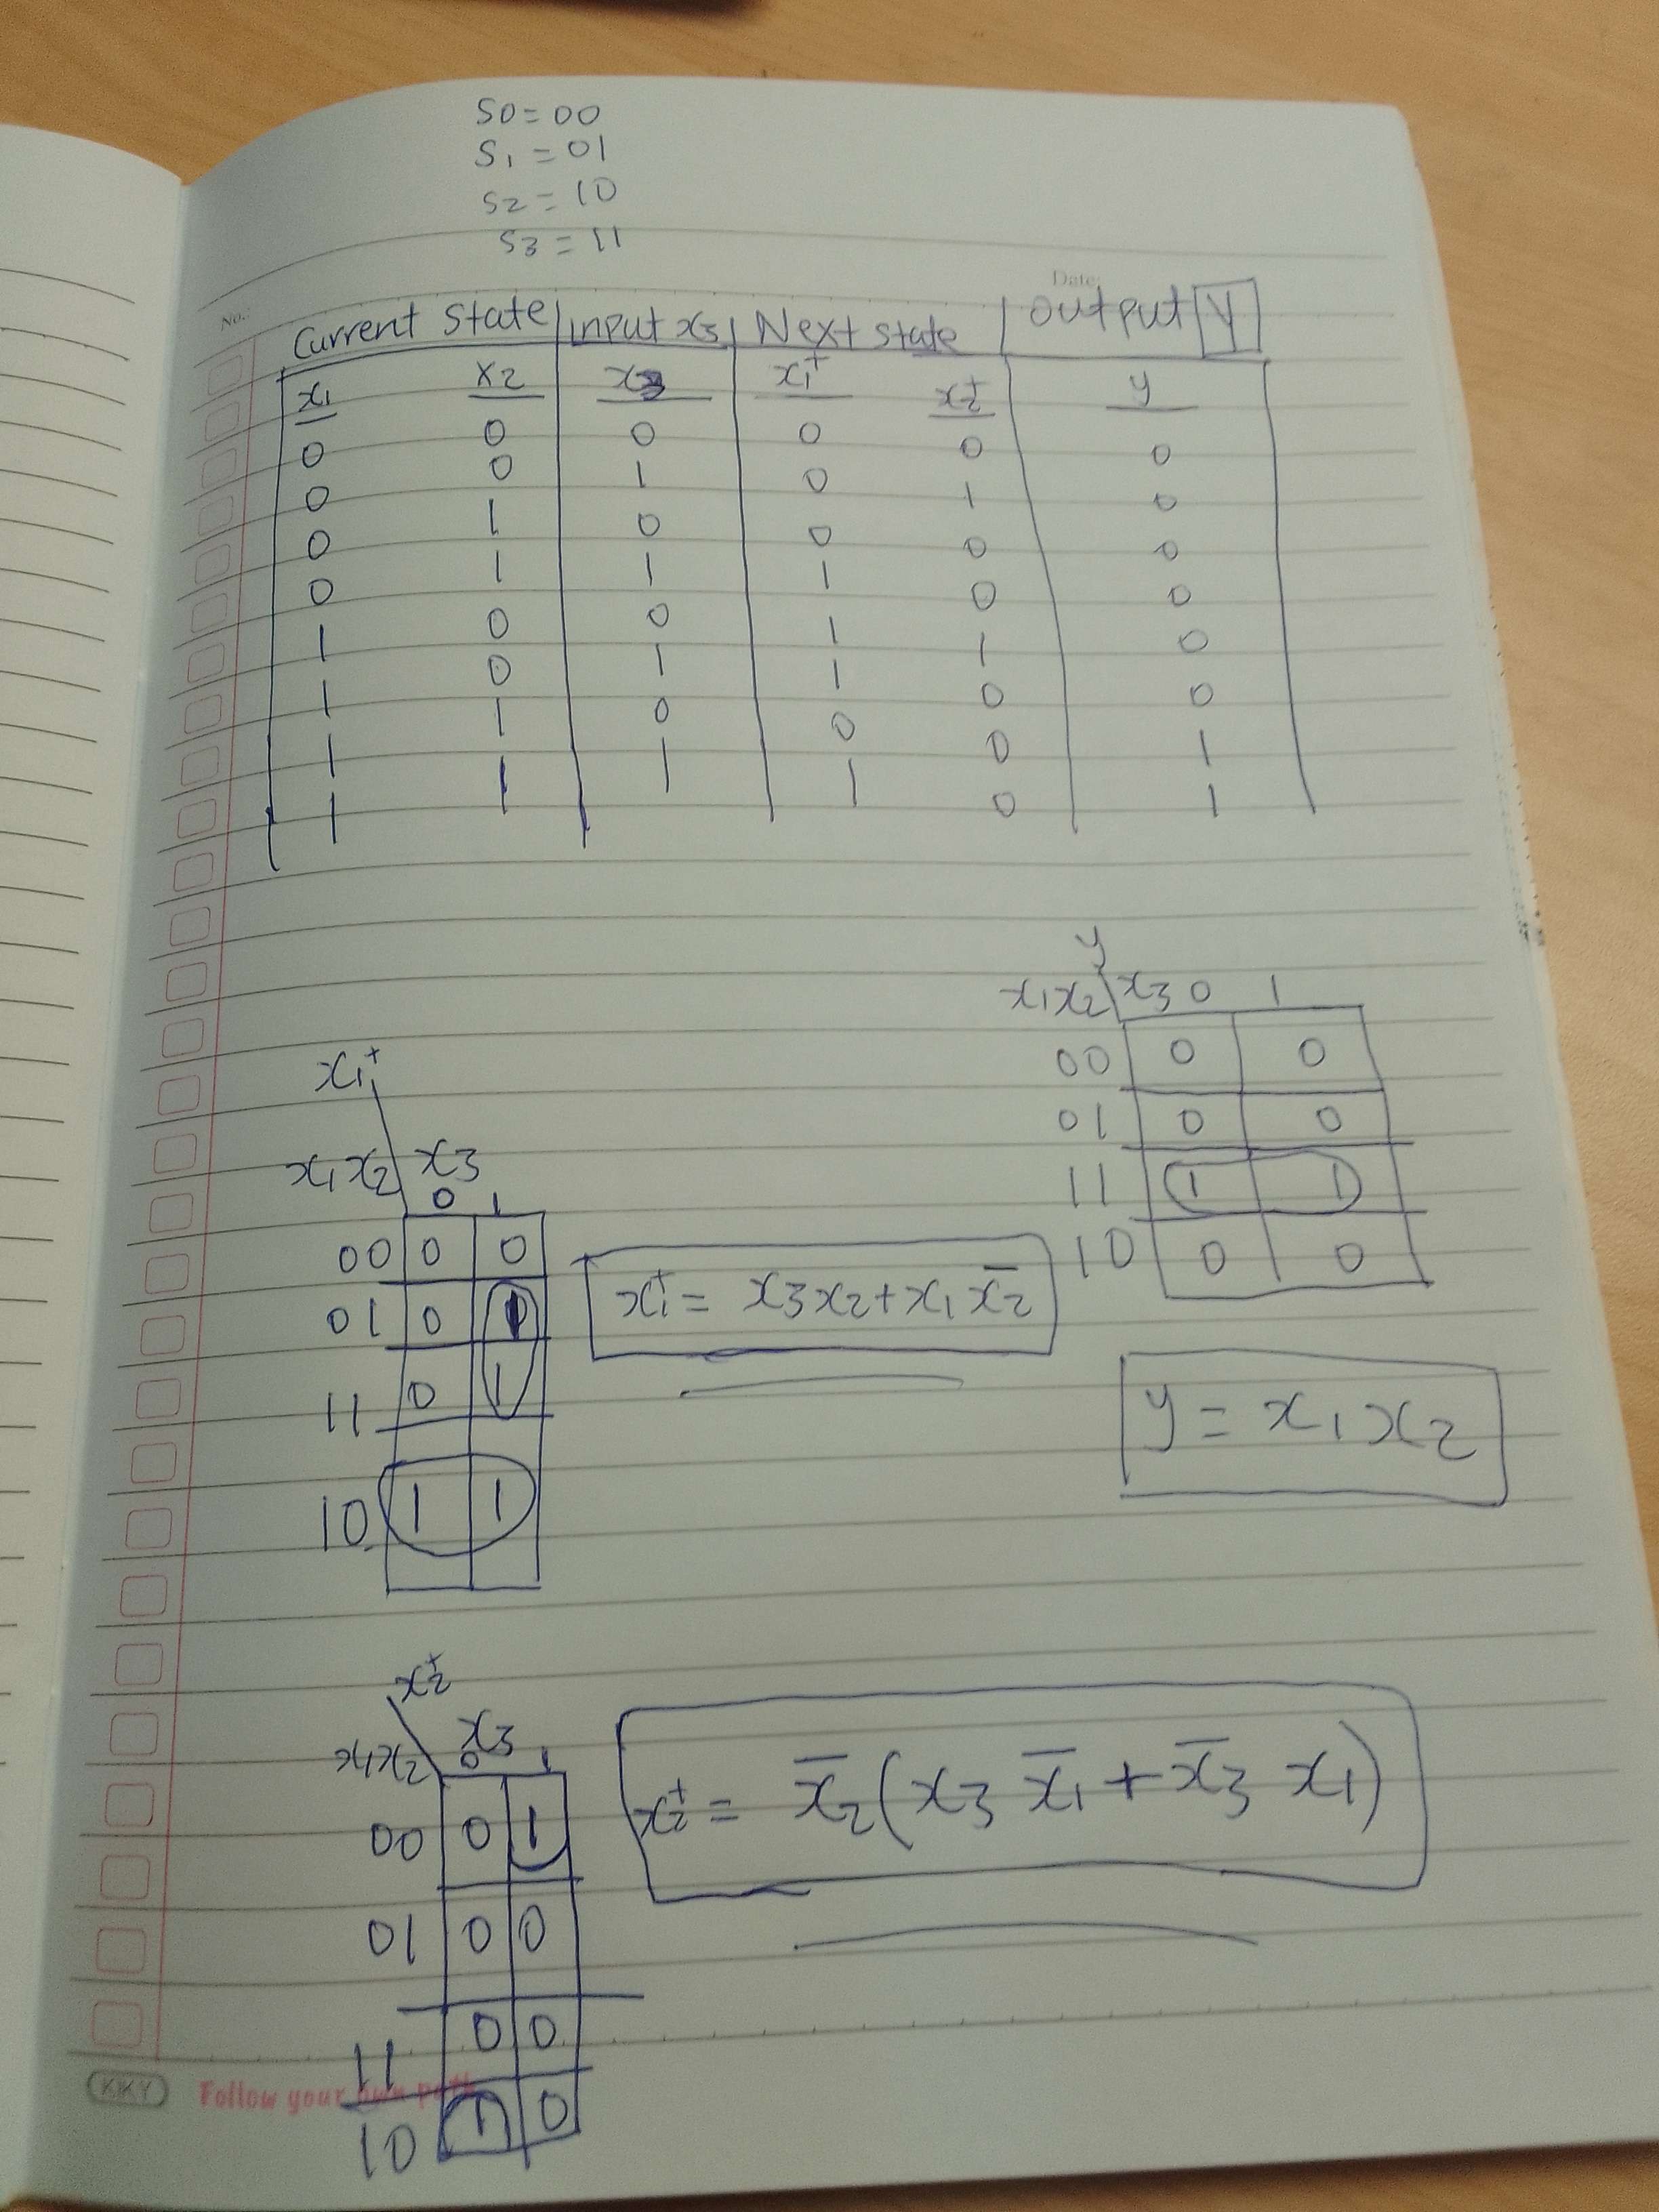 S0 = 00
S1 = 01
S2 = 10
S3 = 11
No.:
Date:
Current State | input x3 | Next state | output Y
x1 x2 x3 x1⁺ x2⁺ y
0 0 0 0 0 0
0 0 1 0 1 0
0 1 0 0 0 0
0 1 1 1 0 0
1 0 0 1 1 0
1 0 1 1 0 0
1 1 0 0 0 1
1 1 1 1 0 1
y
x1x2 \ x3 0 1
00 0 0
01 0 0
11 1 1
10 0 0
y = x1x2
x1⁺
x1x2 \ x3
0 1
00 0 0
01 0 1
11 0 1
10 1 1
x1⁺ = x3x2 + x1x̅2
x2⁺
x1x2 \ x3
0 1
00 0 1
01 0 0
11 0 0
10 1 0
x2⁺ = x̅2(x3x̅1 + x̅3x1)
KKY Follow your own path